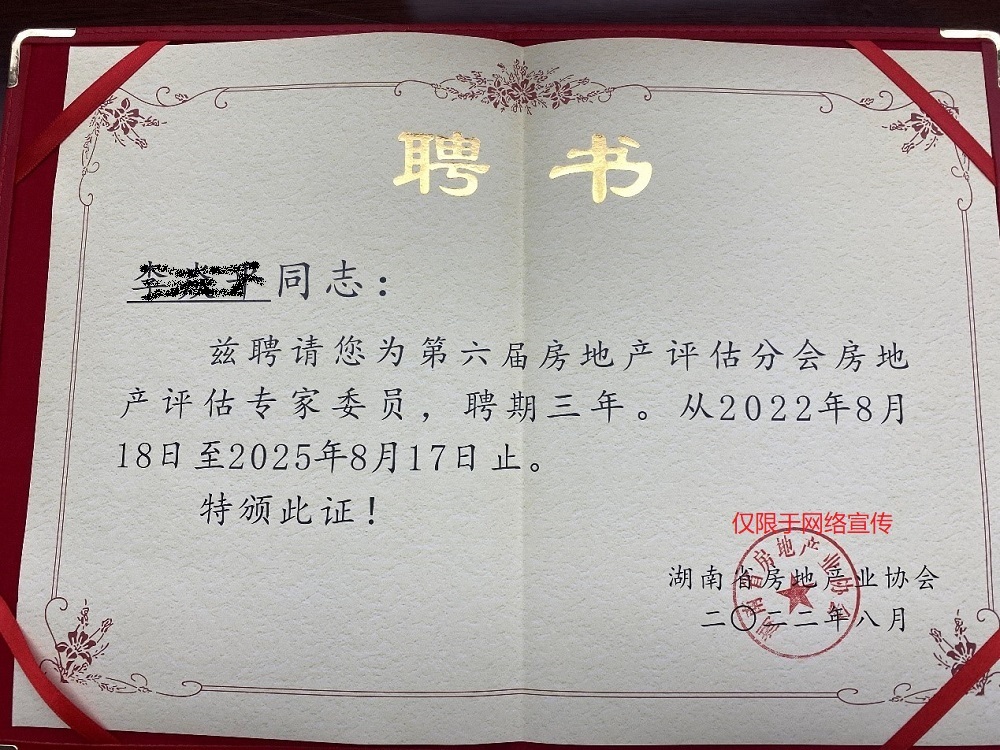 聘书
同志：
兹聘请您为第六届房地产评估分会房地
产评估专家委员，聘期三年。从2022年8月
18日至2025年8月17日止。
特颁此证！
仅限于网络宣传
湖南省房地产业协会
二〇二二年八月
湖南省房地产业协会